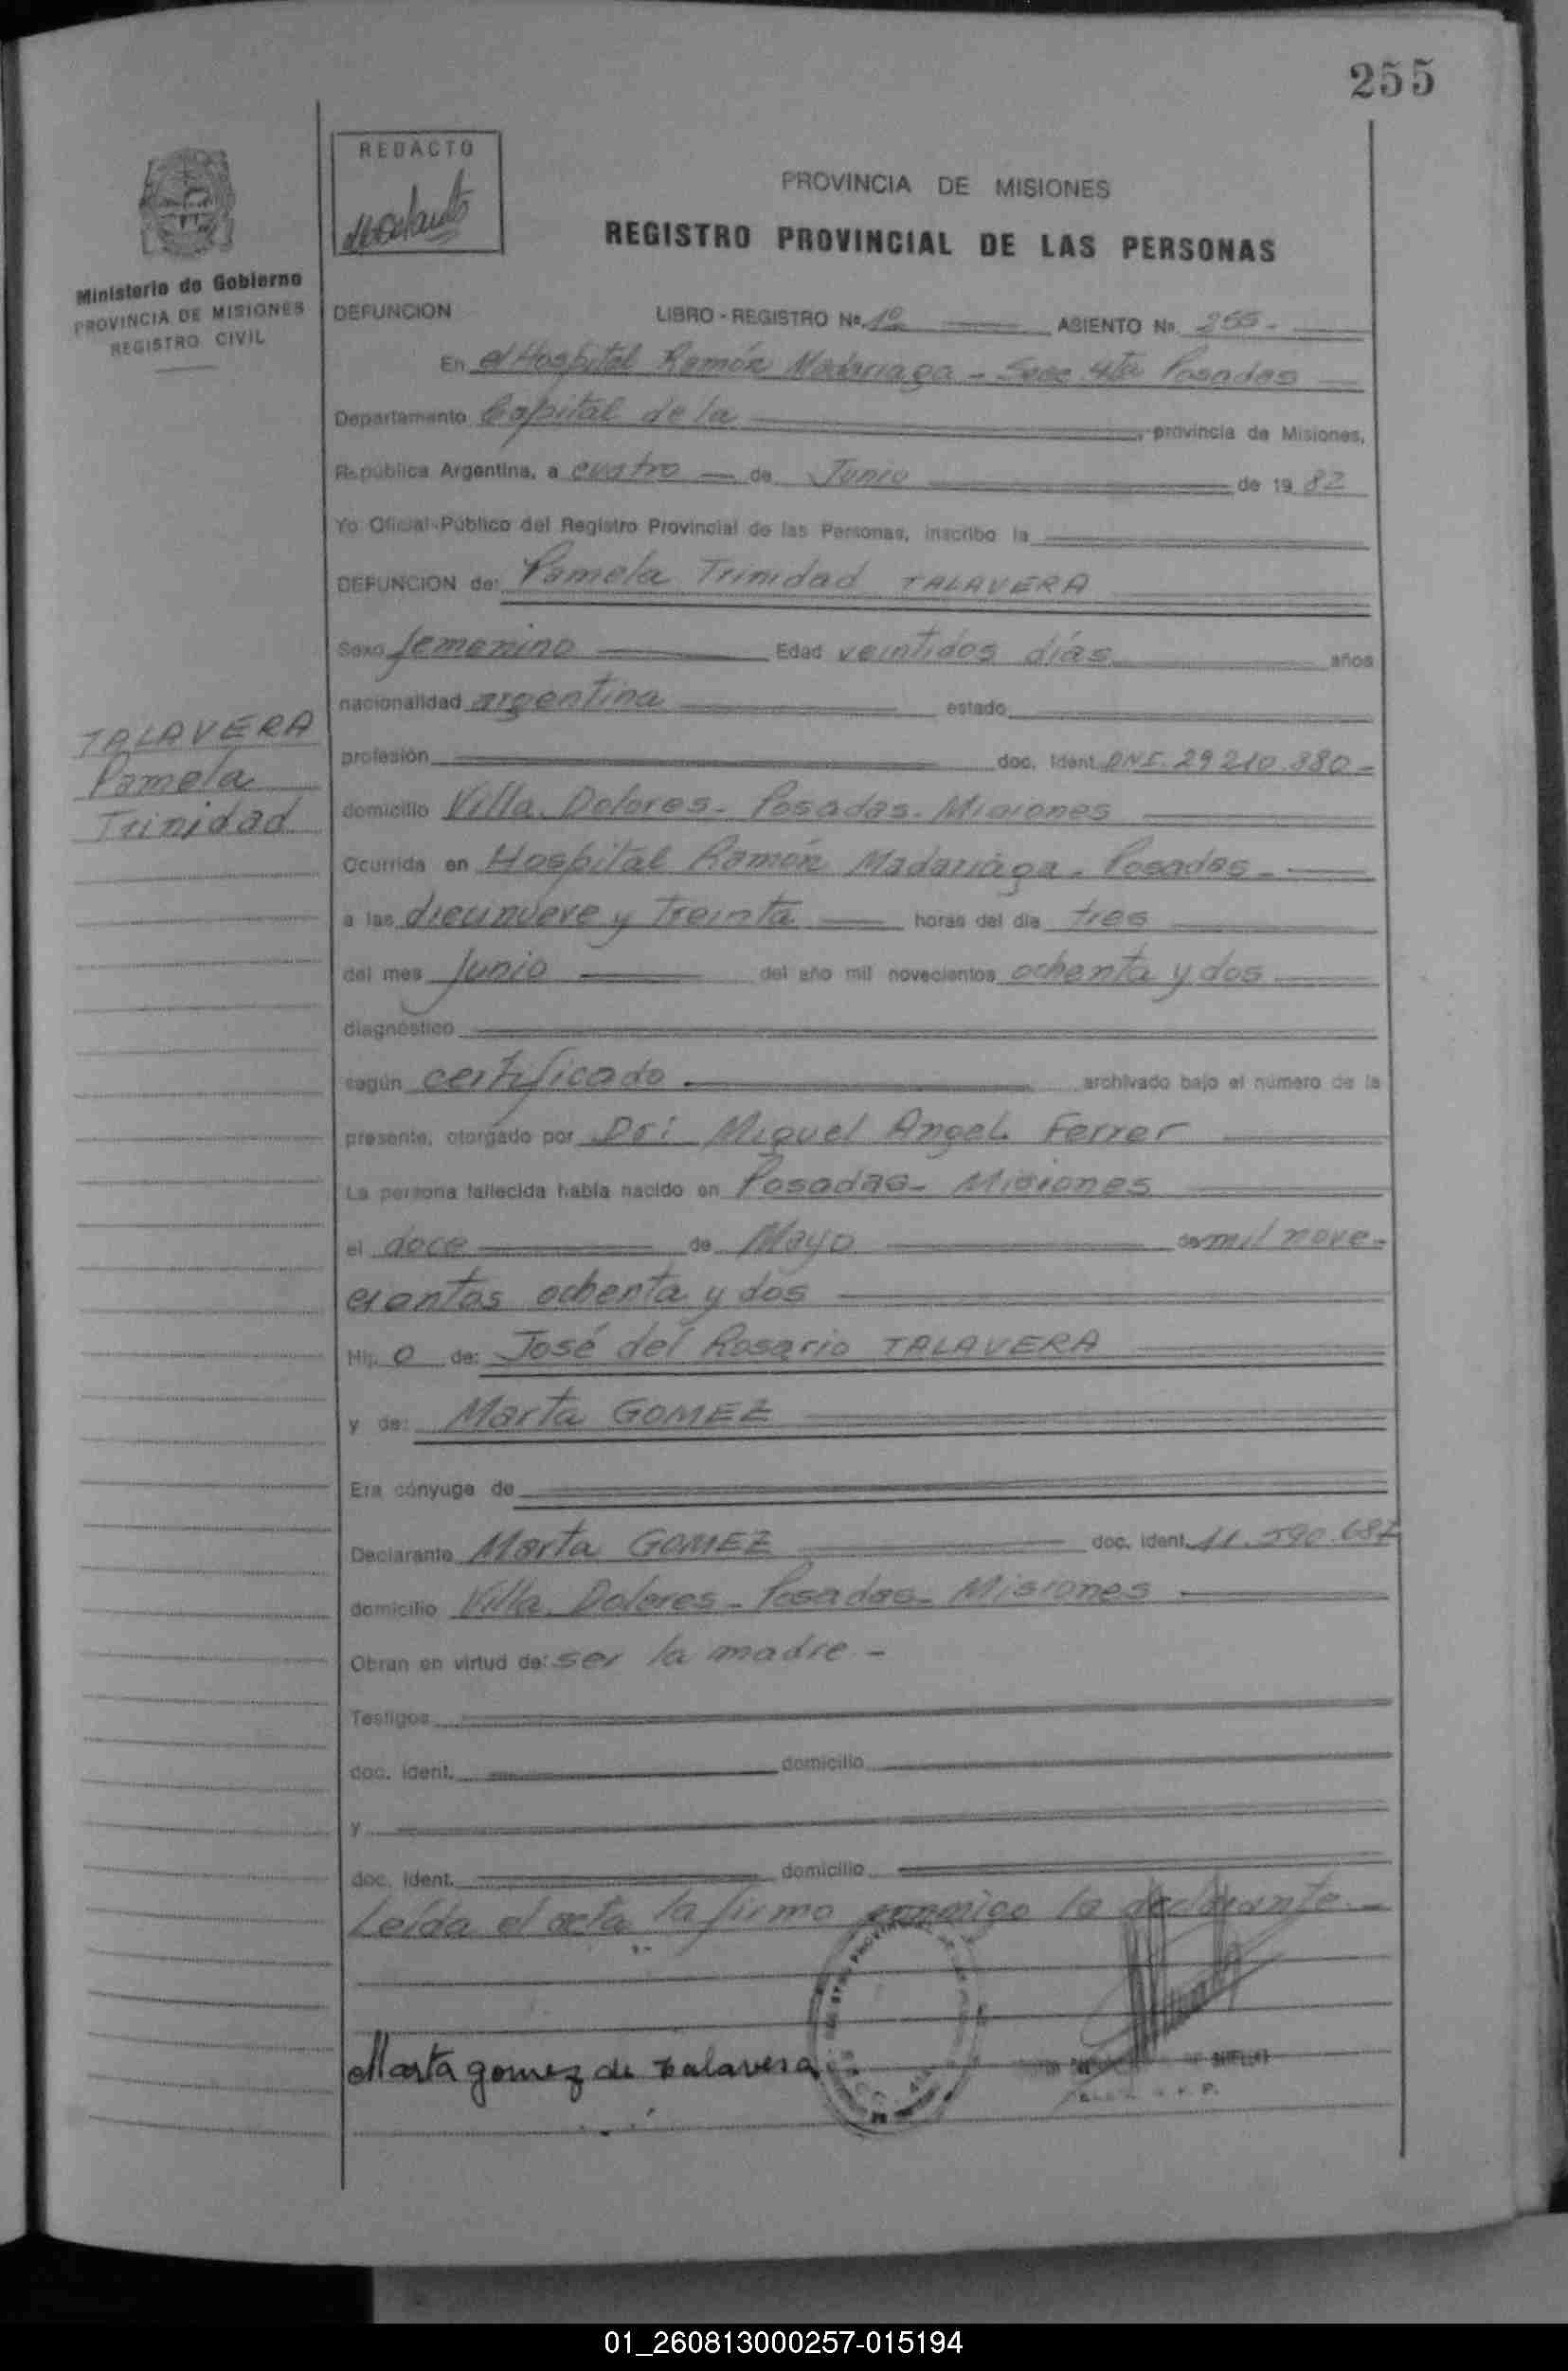 255
REDACTO
PROVINCIA DE MISIONES
REGISTRO PROVINCIAL DE LAS PERSONAS
Ministerio de Gobierno
PROVINCIA DE MISIONES
REGISTRO CIVIL
DEFUNCION LIBRO - REGISTRO Nº 1º ASIENTO Nº 255-
En el Hospital Ramón Madariaga - Secc. 4ta Posadas
Departamento Capital de la , provincia de Misiones,
República Argentina, a cuatro de Junio de 19 82
Yo Oficial Público del Registro Provincial de las Personas, inscribo la
DEFUNCION de: Pamela Trinidad TALAVERA
Sexo femenino Edad veintidos días años
nacionalidad argentina estado
TALAVERA
Pamela
Trinidad
profesión doc. Ident. DNI. 29210.380-
domicilio Villa. Dolores- Posadas. Misiones
Ocurrida en Hospital Ramón Madariaga- Posadas-
a las diecinueve y Treinta horas del día tres
del mes Junio del año mil novecientos ochenta y dos
diagnóstico
según certificado archivado bajo el número de la
presente, otorgado por Dr: Miguel Angel Ferrer
La persona fallecida había nacido en Posadas- Misiones
el doce de Mayo de mil nove-
cientos ochenta y dos
Hij o de: José del Rosario TALAVERA
y de: Marta GOMEZ
Era cónyuge de
Declarante Marta GOMEZ doc. ident. 11.590.687
domicilio Villa. Dolores- Posadas- Misiones
Obran en virtud de: ser la madre-
Testigos
doc. ident. domicilio
y
doc. ident. domicilio
Leída el acta la firma conmigo la declarante.-
Marta gomez de talavera
01_260813000257-015194